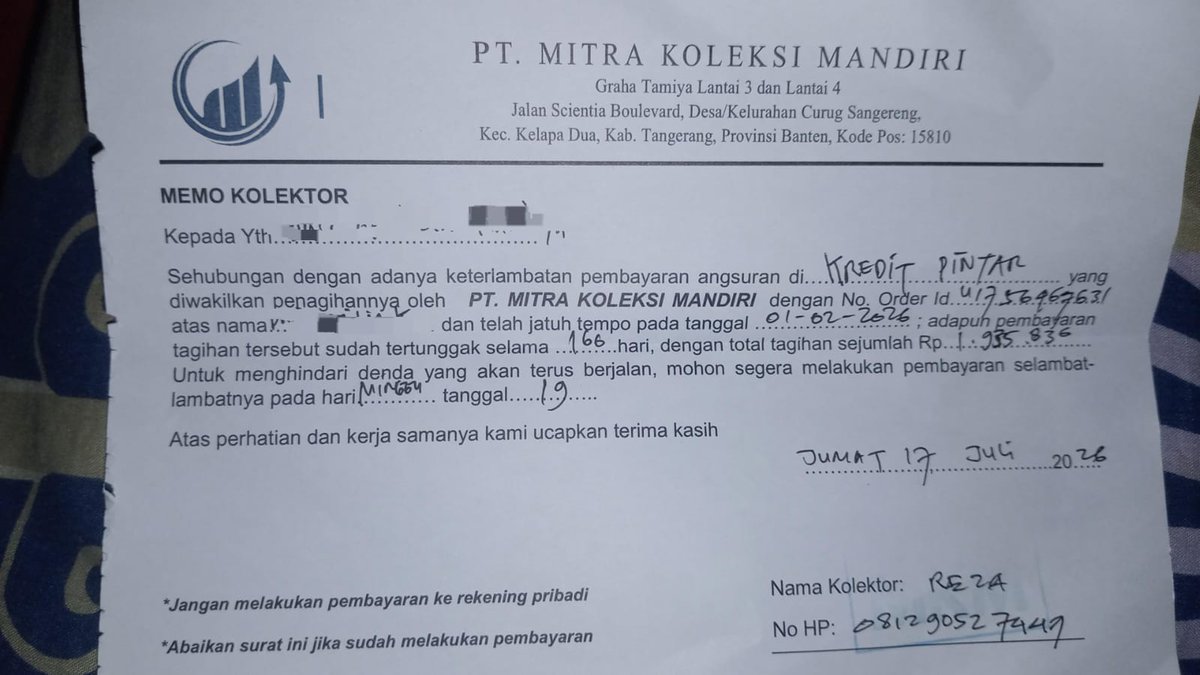 PT. MITRA KOLEKSI MANDIRI
Graha Tamiya Lantai 3 dan Lantai 4
Jalan Scientia Boulevard, Desa/Kelurahan Curug Sangereng,
Kec. Kelapa Dua, Kab. Tangerang, Provinsi Banten, Kode Pos: 15810
MEMO KOLEKTOR
Kepada Yth
Sehubungan dengan adanya keterlambatan pembayaran angsuran di...KREDIT PINTAR...yang
diwakilkan penagihannya oleh PT. MITRA KOLEKSI MANDIRI dengan No. Order Id.
atas nama dan telah jatuh tempo pada tanggal ...01-02-2026...; adapuh pembayaran
tagihan tersebut sudah tertunggak selama ...166...hari, dengan total tagihan sejumlah Rp..1.935.836
Untuk menghindari denda yang akan terus berjalan, mohon segera melakukan pembayaran selambat-
lambatnya pada hari MINGGU tanggal.....19.....
Atas perhatian dan kerja samanya kami ucapkan terima kasih
JUMAT 17 JULI 2026
*Jangan melakukan pembayaran ke rekening pribadi
*Abaikan surat ini jika sudah melakukan pembayaran
Nama Kolektor: REZA
No HP: 081290527449